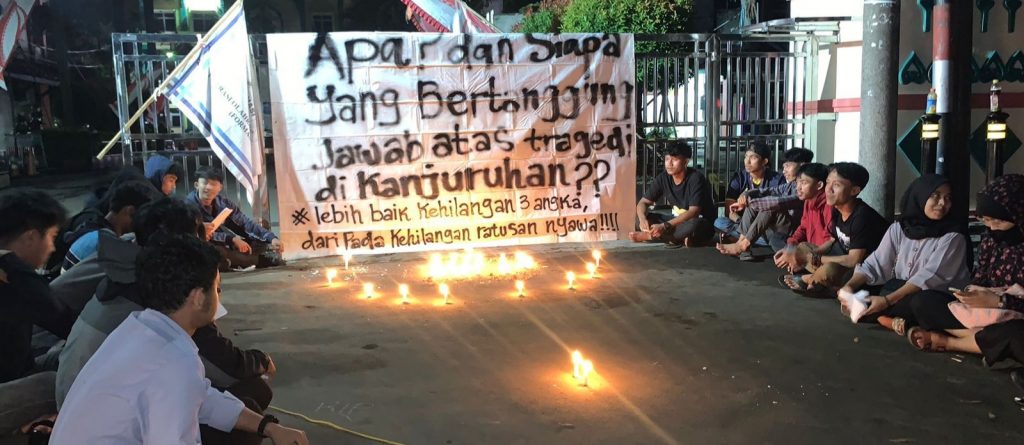 Apa? dan Siapa
Yang Bertanggung
Jawab atas tragedi
di Kanjuruhan??
* lebih baik Kehilangan 3 angka,
dari Pada Kehilangan ratusan nyawa!!!!